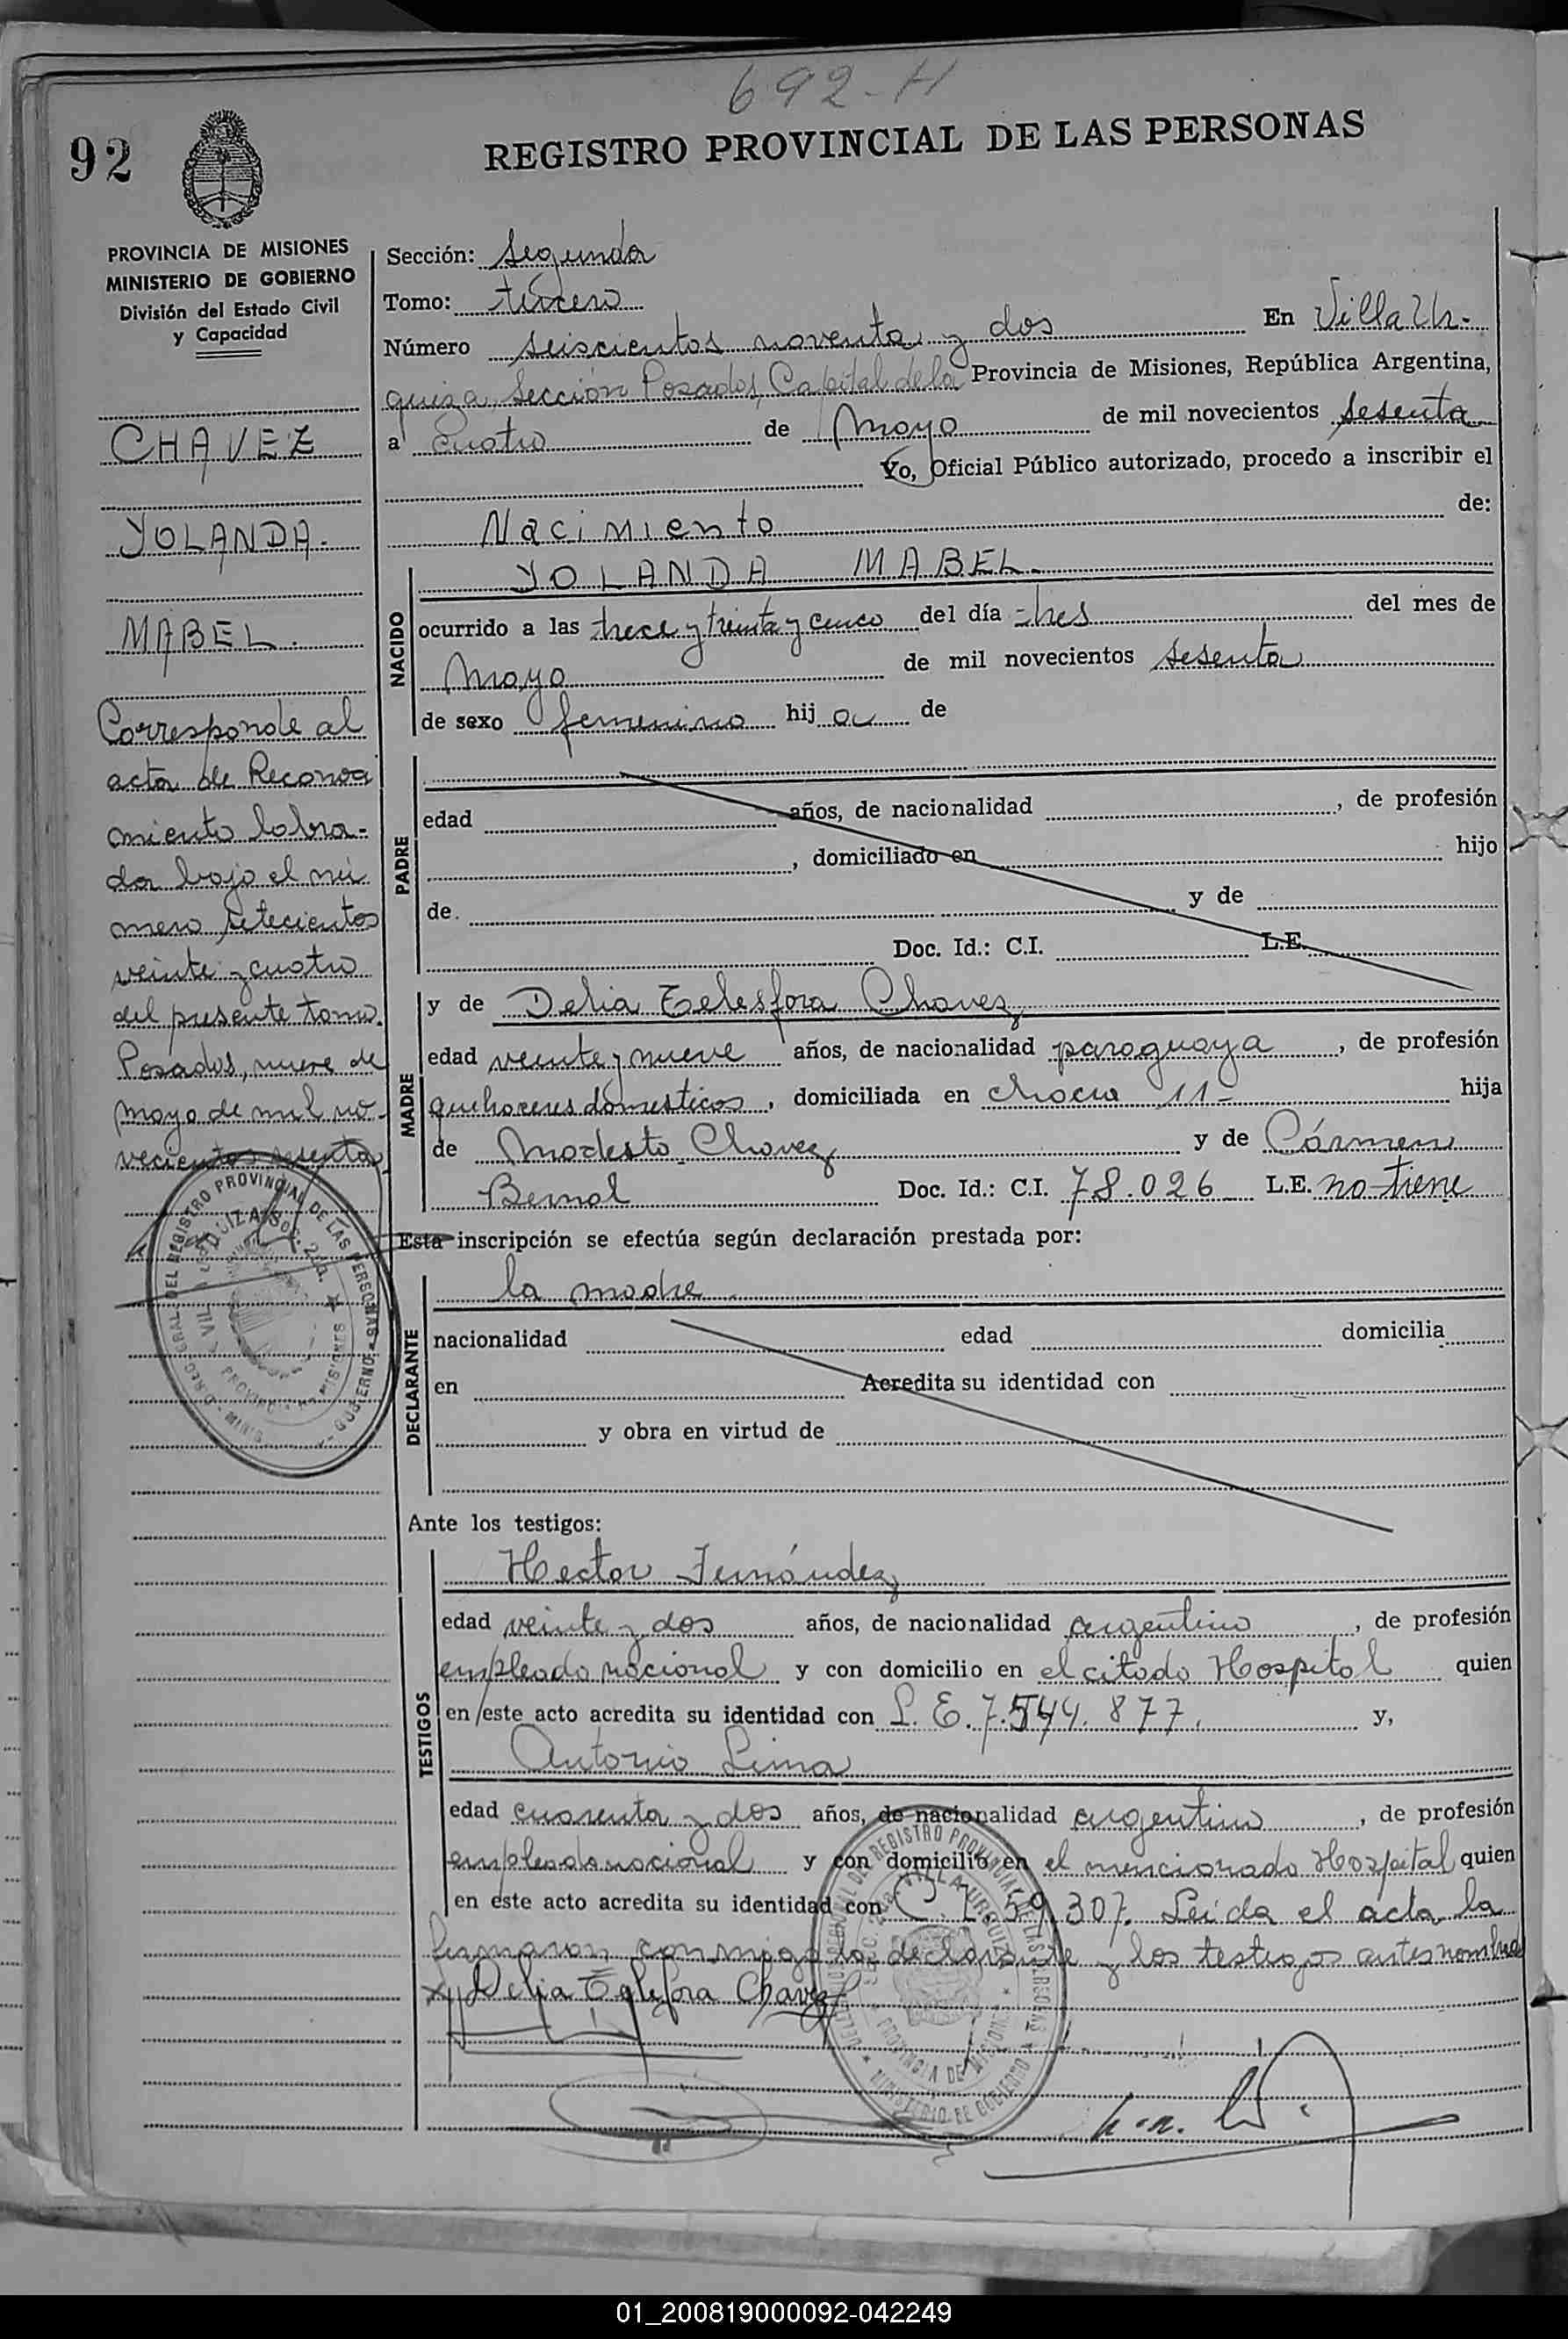 692-H
92
REGISTRO PROVINCIAL DE LAS PERSONAS
PROVINCIA DE MISIONES
MINISTERIO DE GOBIERNO
División del Estado Civil
y Capacidad
CHAVEZ
YOLANDA.
MABEL.
Corresponde al
acta de Reconoci
miento labra-
da bajo el nú
mero setecientos
veinte y cuatro
del presente tomo.
Posadas, nueve de
mayo de mil no-
vecientos sesenta
Sección: Segunda
Tomo: tercero
Número seiscientos noventa y dos En Villa Ur-
quiza, Sección Posadas, Capital de la Provincia de Misiones, República Argentina,
a cuatro de Mayo de mil novecientos sesenta
Yo, Oficial Público autorizado, procedo a inscribir el
Nacimiento de:
NACIDO
YOLANDA MABEL.
ocurrido a las trece y treinta y cinco del día tres del mes de
Mayo de mil novecientos sesenta
de sexo femenino hij a de
PADRE
edad años, de nacionalidad , de profesión
, domiciliado en hijo
de. y de
Doc. Id.: C.I. L.E.
MADRE
y de Delia Telesfora Chavez
edad veinte y nueve años, de nacionalidad paraguaya , de profesión
quehaceres domesticos , domiciliada en chacra 11- hija
de Modesto Chavez y de Cármen
Bernal Doc. Id.: C.I. 78.026 L.E. no tiene
Esta inscripción se efectúa según declaración prestada por:
DECLARANTE
la madre
nacionalidad edad domicilia
en Acredita su identidad con
y obra en virtud de
Ante los testigos:
TESTIGOS
Hector Fernández
edad veinte y dos años, de nacionalidad argentino , de profesión
empleado nacional y con domicilio en el citado Hospital quien
en este acto acredita su identidad con L. E. 7.544.877, y,
Antonio Lima
edad cuarenta y dos años, de nacionalidad argentino , de profesión
empleado nacional y con domicilio en el mencionado Hospital quien
en este acto acredita su identidad con C. I. 59.307. Leída el acta la
firmaron conmigo la declarante y los testigos antes nombra
Delia Telefora Chavez
01_200819000092-042249